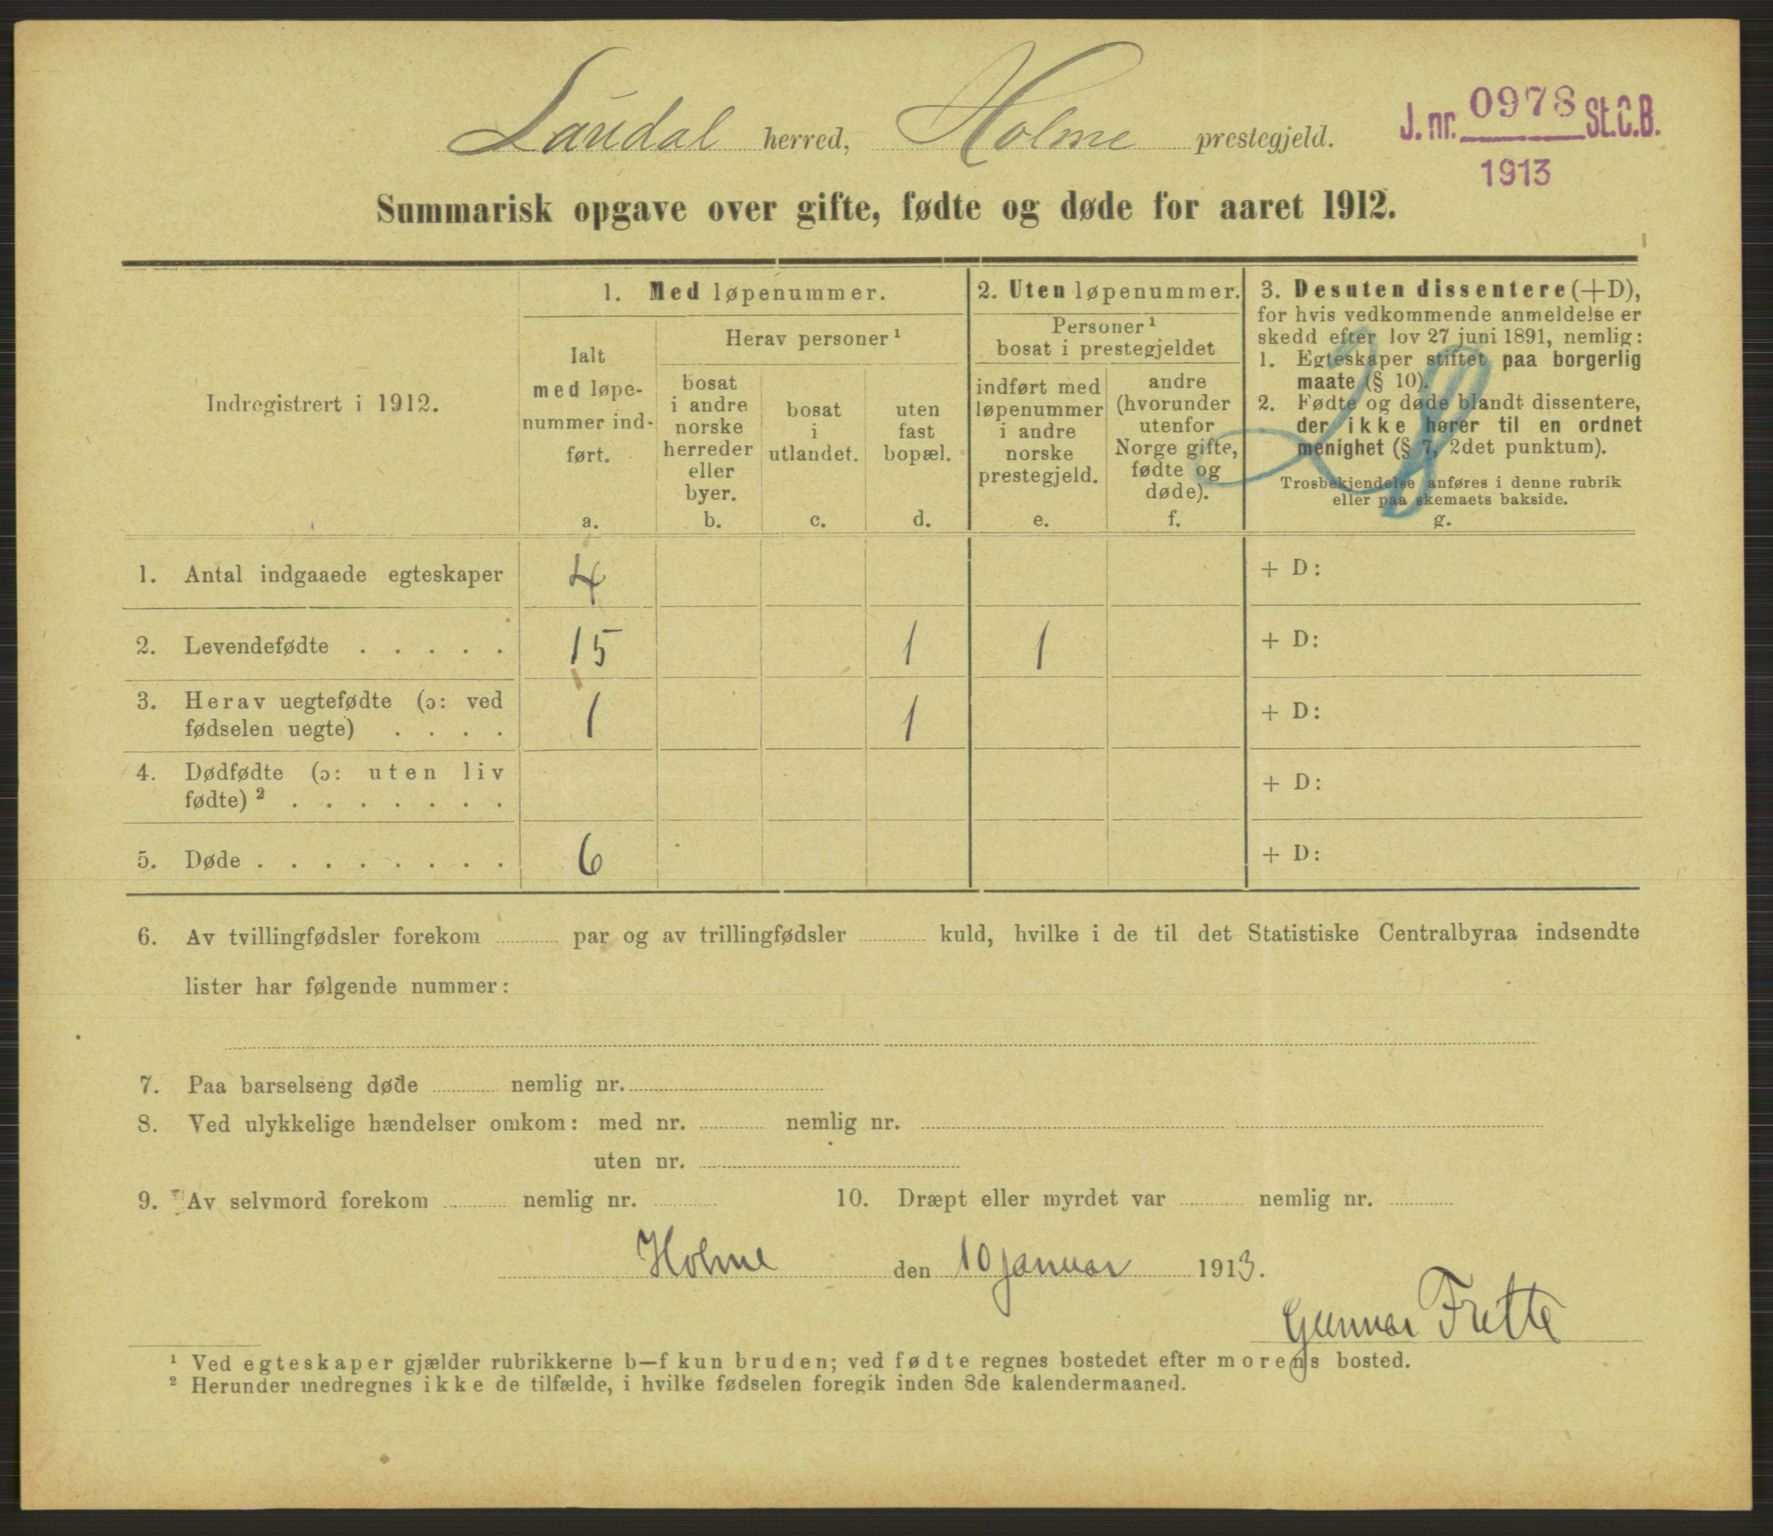 Laudal herred, Holme prestegjeld.
J. nr. 0978 St. C. B.
1913
Summarisk opgave over gifte, fødte og døde for aaret 1912.
Indregistrert i 1912.
1. Med løpenummer.
Ialt
med løpe-
nummer ind-
ført.
a.
Herav personer ¹
bosat
i andre
norske
herreder
eller
byer.
b.
bosat
i
utlandet.
c.
uten
fast
bopæl.
d.
2. Uten løpenummer.
Personer ¹
bosat i prestegjeldet
indført med
løpenummer
i andre
norske
prestegjeld.
e.
andre
(hvorunder
utenfor
Norge gifte,
fødte og
døde).
f.
3. Desuten dissentere (+D),
for hvis vedkommende anmeldelse er
skedd efter lov 27 juni 1891, nemlig:
1. Egteskaper stiftet paa borgerlig
maate (§ 10).
2. Fødte og døde blandt dissentere,
der ikke hører til en ordnet
menighet (§ 7, 2det punktum).
Trosbekjendelse anføres i denne rubrik
eller paa skemaets bakside.
g.
1. Antal indgaaede egteskaper 4 + D:
2. Levendefødte . . . . . 15 1 1 + D:
3. Herav uegtefødte (ɔ: ved
fødselen uegte) . . . . 1 1 + D:
4. Dødfødte (ɔ: uten liv
fødte) ² . . . . . . . + D:
5. Døde . . . . . . . . 6 + D:
6. Av tvillingfødsler forekom par og av trillingfødsler kuld, hvilke i de til det Statistiske Centralbyraa indsendte
lister har følgende nummer:
7. Paa barselseng døde nemlig nr.
8. Ved ulykkelige hændelser omkom: med nr. nemlig nr.
uten nr.
9. Av selvmord forekom nemlig nr. 10. Dræpt eller myrdet var nemlig nr.
Holme den 10 januar 1913.
Gunnar Frette
¹ Ved egteskaper gjælder rubrikkerne b—f kun bruden; ved fødte regnes bostedet efter morens bosted.
² Herunder medregnes ikke de tilfælde, i hvilke fødselen foregik inden 8de kalendermaaned.